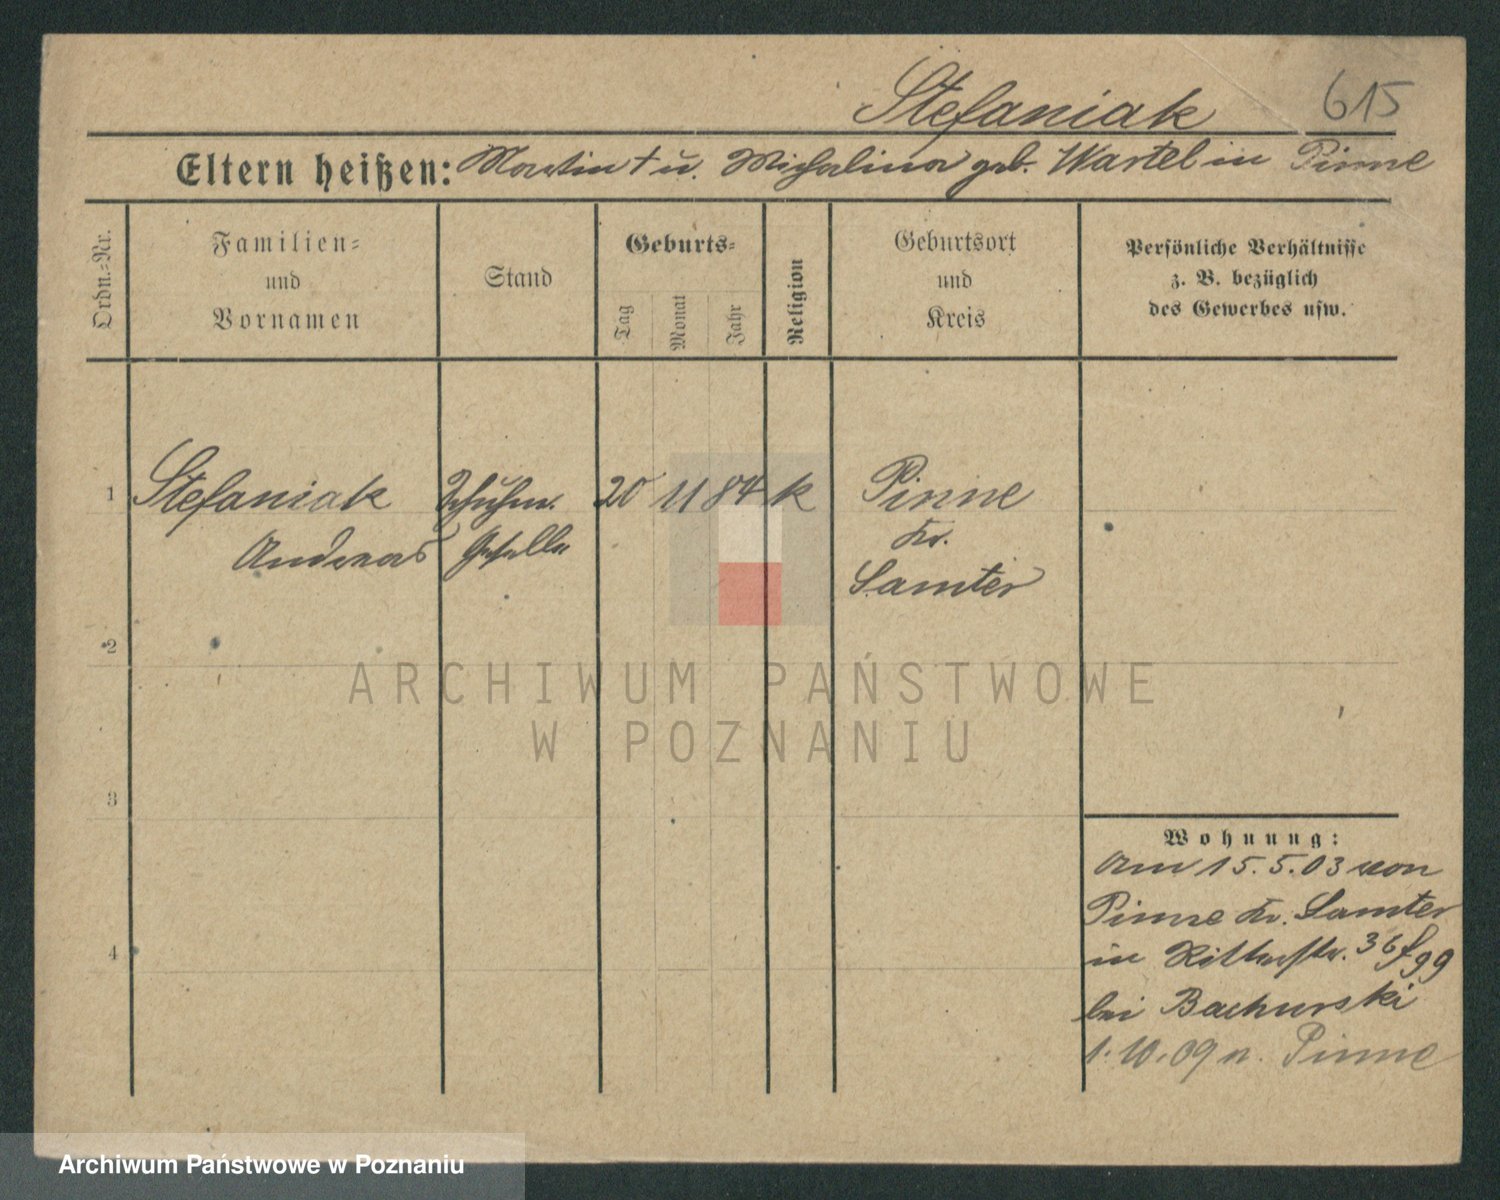 Stefaniak 615
Eltern heißen: Martin † u. Michalina geb. Wartel in Pinne
Ordn.-Nr.
Familien-
und
Vornamen
Stand
Geburts-
Tag
Monat
Jahr
Religion
Geburtsort
und
Kreis
Persönliche Verhältnisse
z. B. bezüglich
des Gewerbes usw.
1 Stefaniak Schuhm. 20 11 84 k Pinne
Andreas Geselle Kr.
Samter
2
3
4
Wohnung:
Am 15.5.03 von
Pinne Kr. Samter
in Ritterstr. 36
bei Bachurski
1.10.09 n. Pinne
ARCHIWUM PAŃSTWOWE
W POZNANIU
Archiwum Państwowe w Poznaniu